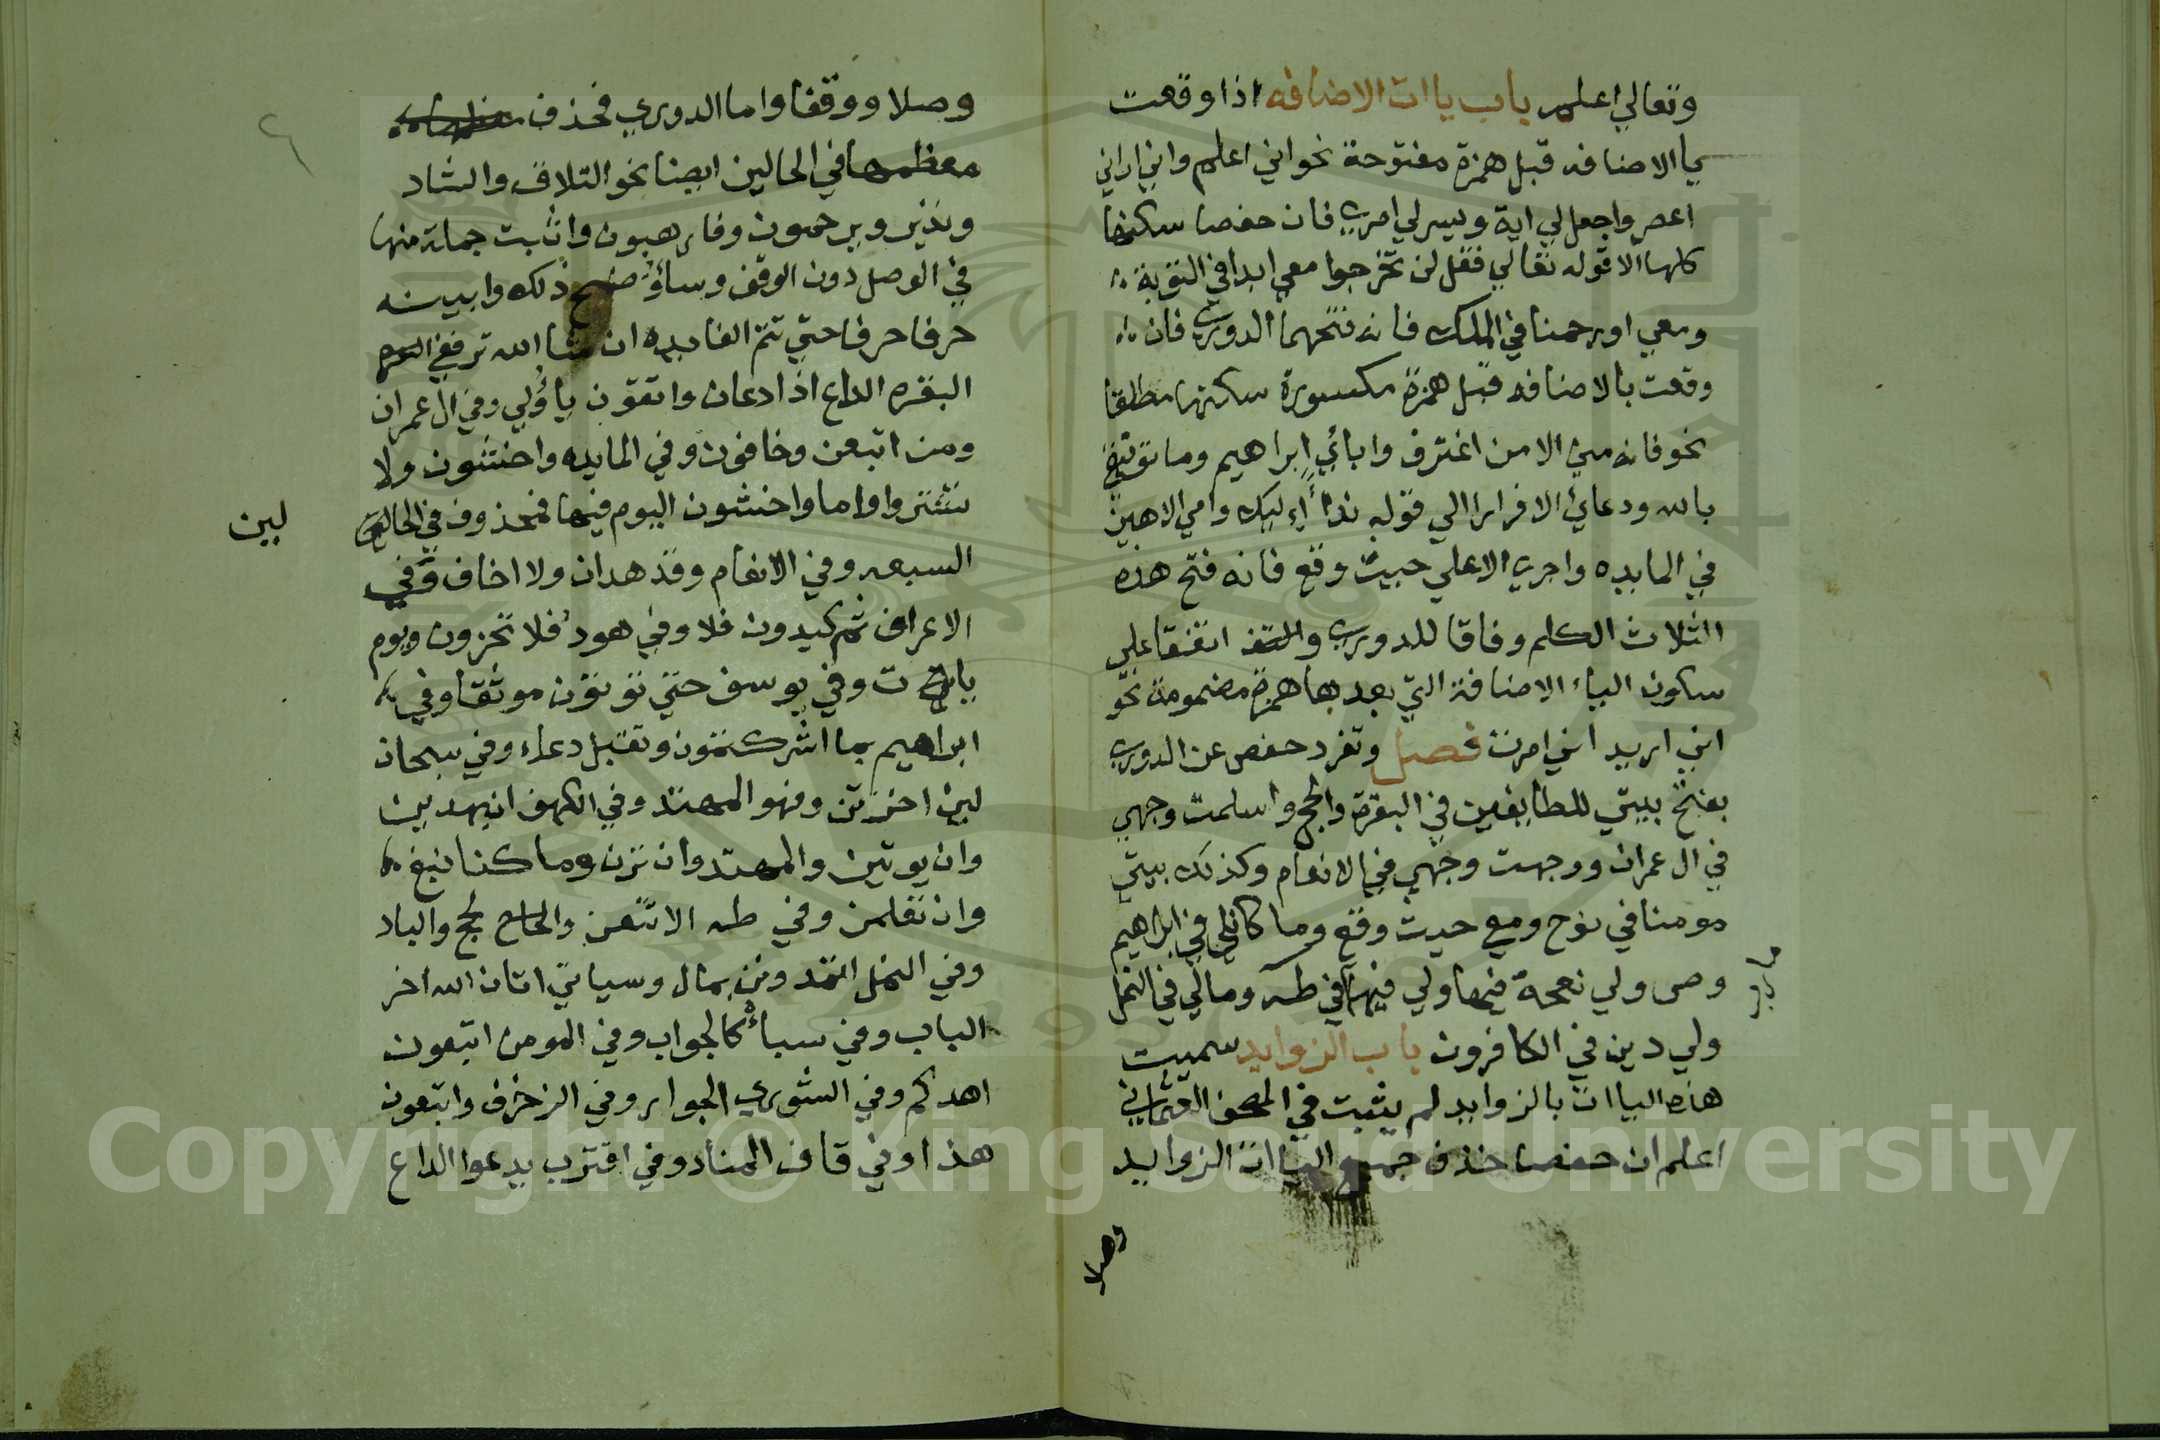 وتعالي اعلم باب ياات الاضافه اذا وقعت
يا الاضافه قبل همزة مفتوحة نحو اني اعلم واني اراني
اعصر واجعل لي اية ويسر لي امري فان حفصا سكنها
كلها الا قوله تعالي فقل لن تخرجوا معي ابدا في التوبة
ومعي او رحمنا في الملك فانه فتحهما الدوري فان
وقعت يا الاضافه قبل همزة مكسورة سكنها مطلقا
نحو فانه مني الا من اغترف واباءي ابراهيم وما توفيقي
بالله ودعائي الا فرارا الي قوله وامي الاهين
في المايده واجري الا علي حيث وقع فانه فتح هذه
الثلاث الكلم وفاقا للدوري واتفقا علي
سكون الياء الاضافة التي بعدها همزة مضمومة نحو
اني اريد اني امرت فصل وتفرد حفص عن الدوري
بفتح بيتي للطايفين في البقرة والحج واسلمت وجهي
في ال عمران ووجهت وجهي في الانعام وكذلك بيتي
مومنا في نوح ومع حيث وقع وما كان لي في ابراهيم
وص ولي نعجة فيها ولي فيها في طه ومالي في النمل
ولي دين في الكافرون باب الزوايد سميت
هذه الياات بالزوايد لم يثبت في المصحف العثماني
اعلم ان حفصا حذف جميع الياات الزوايد
وصلا
وصلا ووقفا واما الدوري فحذف
معظمها في الحالين ايضا نحو التلاق والتناد
ونذير ويرحمون وفارهبون واثبت جملة منها
في الوصل دون الوقف وساوضح ذلك وابينه
حرفا حرفا حتي تتم الفايده ان شا الله
البقره الداع اذا دعان واتقون ياولي وفي ال عمران
ومن اتبعن وخافون وفي المايده واخشون ولا
تشتروا واما واخشون اليوم فيها فمحذوف في الحالين
لين
السبعه وفي الانعام وقد هدان ولا اخاف وفي
الاعراف ثم كيدون فلا وفي هود فلا تخزون ويوم
يات وفي يوسف حتي توتون موثقا وفي
ابراهيم بما اشركتمون وتقبل دعاء وفي سبحان
لين اخرتن وفهو المهتد وفي الكهف ان يهدين
وان يوتين والمهتد وان ترن وما كنا نبغ
وان تعلمن وفي طه الا تتبعن والحج والباد
وفي النمل اتمدونن بمال وسياتي اتان الله اخر
الباب وفي سبأ كالجواب وفي المومن اتبعون
اهدكم وفي الشوري الجوار وفي الزخرف واتبعون
هذا وفي قاف المناد وفي اقترب يدعوا الداع
Copyright © King Saud University